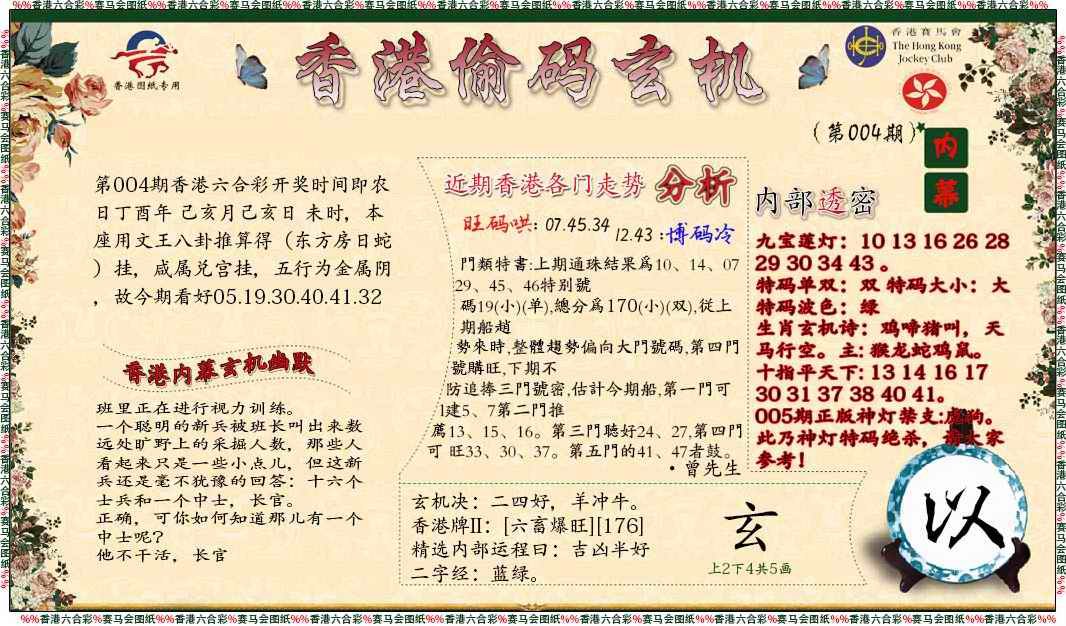 %%香港六合彩%赛马会图纸%%香港六合彩%赛马会图纸%%香港六合彩%赛马会图纸%%香港六合彩%赛马会图纸%%香港六合彩%赛马会图纸%%香港六合彩%赛马会图纸%%香港六合彩%%
香港图纸专用
香港偷码玄机
香港賽馬會
The Hong Kong
Jockey Club
(第004期)
内
幕
第004期香港六合彩开奖时间即农
日丁酉年 己亥月己亥日 未时，本
座用文王八卦推算得（东方房日蛇
）挂，咸属兑宫挂，五行为金属阴
，故今期看好05.19.30.40.41.32
香港内幕玄机幽默
班里正在进行视力训练。
一个聪明的新兵被班长叫出来数
远处旷野上的采掘人数，那些人
看起来只是一些小点儿，但这新
兵还是毫不犹豫的回答：十六个
士兵和一个中士，长官。
正确，可你如何知道那儿有一个
中士呢？
他不干活，长官
近期香港各门走势 分析
旺码哄：07.45.34
12.43：博码冷
門類特書:上期通珠結果爲10、14、07
29、45、46特别號
碼19(小)(单),總分爲170(小)(双),從上
期船趙
勢來時,整體趨勢偏向大門號碼,第四門
號購旺,下期不
防追捧三門號密,估计今期船,第一門可
1建5、7第二門推
薦13、15、16。第三門聴好24、27,第四門
可 旺33、30、37。第五門的41、47者鼓。
·曾先生
玄机决：二四好，羊冲牛。
香港牌II：[六畜爆旺][176]
精选内部运程曰：吉凶半好
二字经：蓝绿。
玄
上2下4共5画
内部透密
九宝莲灯：10 13 16 26 28
29 30 34 43 。
特码单双：双 特码大小：大
特码波色：绿
生肖玄机诗：鸡啼猪叫，天
马行空。主：猴龙蛇鸡鼠。
十指平天下: 13 14 16 17
30 31 37 38 40 41。
005期正版神灯禁支:虎狗。
此乃神灯特码绝杀，请大家
参考！
以
%%香港六合彩%赛马会图纸%%香港六合彩%赛马会图纸%%香港六合彩%赛马会图纸%%香港六合彩%赛马会图纸%%香港六合彩%赛马会图纸%%香港六合彩%赛马会图纸%%香港六合彩%%